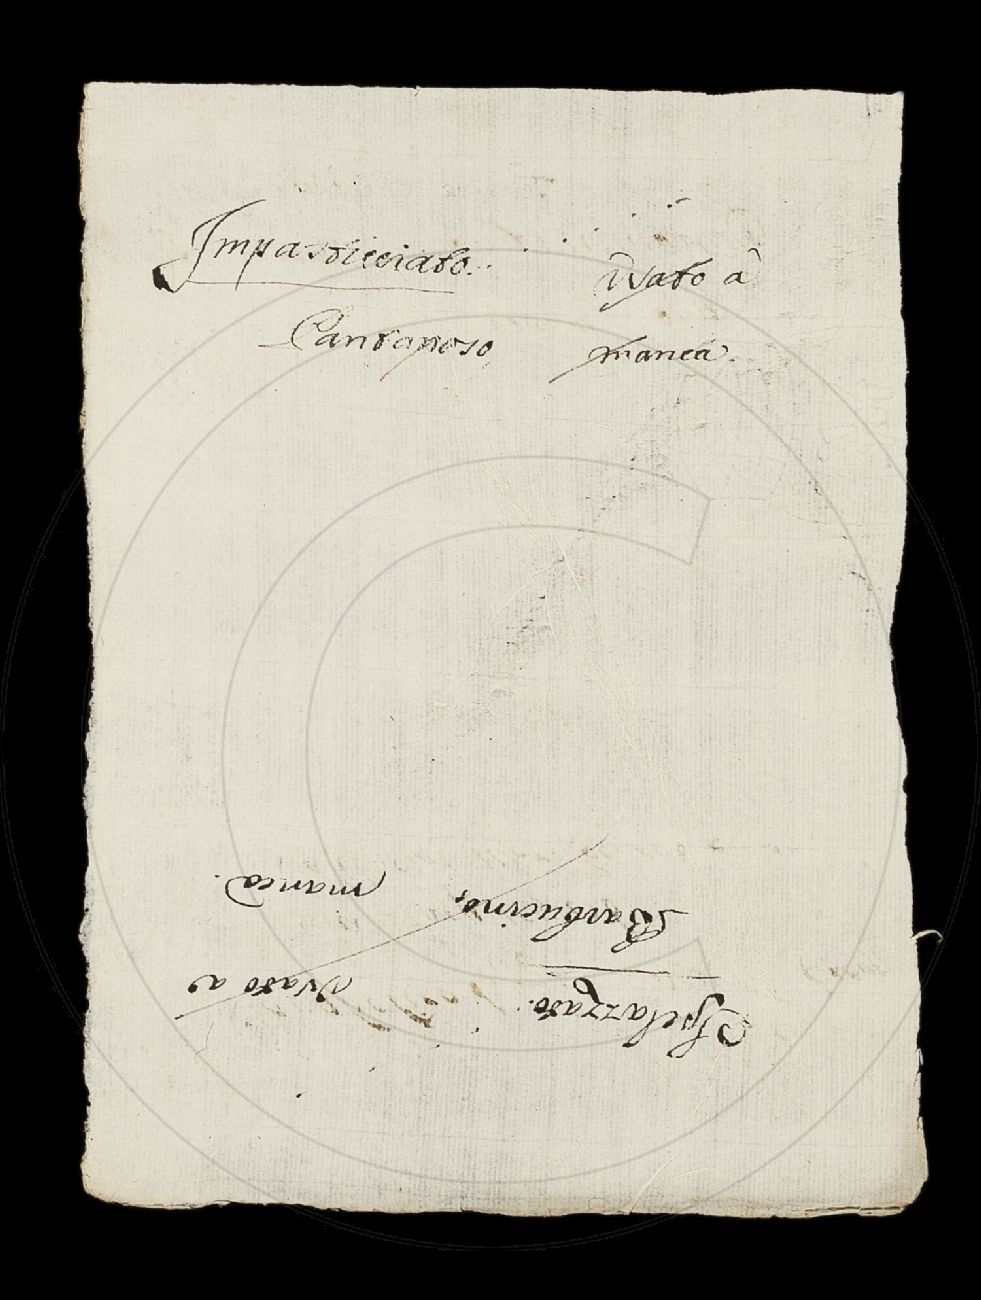 Impasticciato. Usato à
Pantanoso manca.
Spelazzato. Usato a
Barbucino, manca.